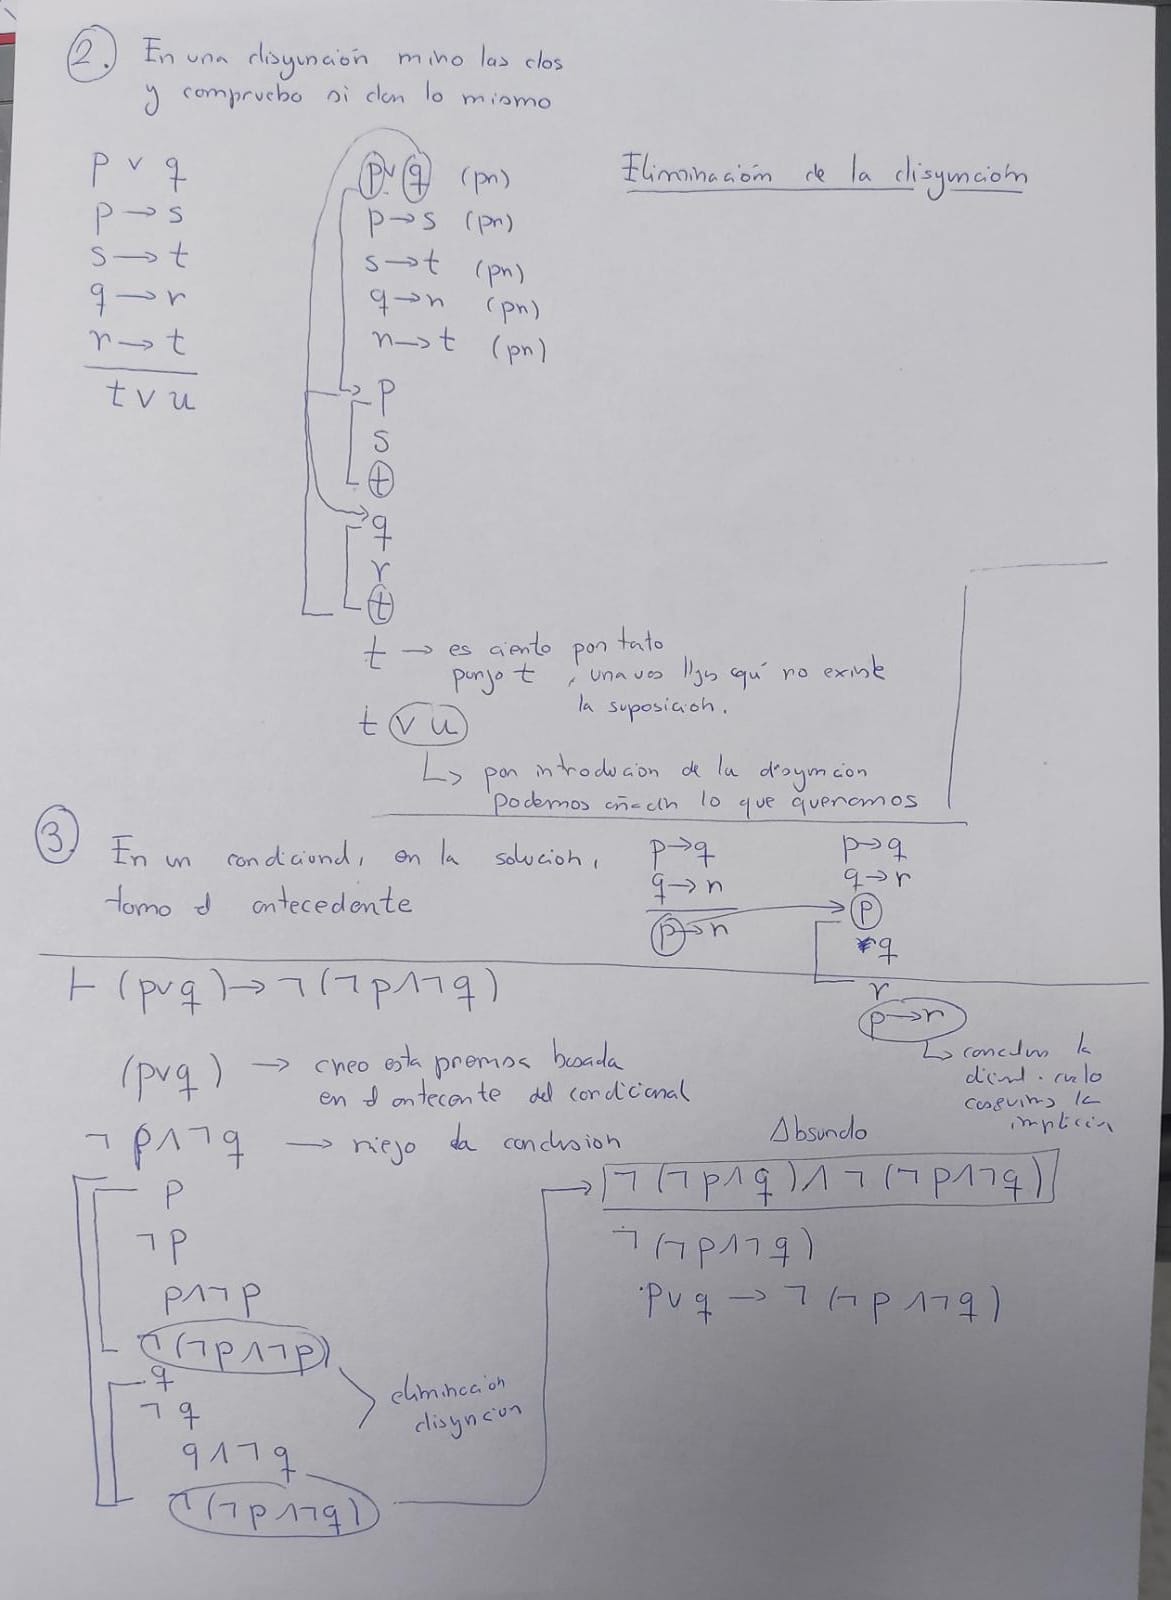 2. En una disyunción miro las dos
y compruebo si dan lo mismo
Eliminación de la disyunción
p ∨ q
p → s
s → t
q → r
r → t
t ∨ u
p ∨ q (pr)
p → s (pr)
s → t (pr)
q → r (pr)
r → t (pr)
p
s
t
q
r
t
t → es cierto por tato
pongo t, una vos llgs quí no existe
la suposición.
t ∨ u
↳ por introducion de la disyuncion
podemos añadir lo que queramos
3. En un condicional, en la solución,
tomo el antecedente
p → q
q → r
p → r
p → q
q → r
p
q
r
p → r
↳ concluy la
cosguims la
implicin
⊢ (p∨q) → ¬(¬p∧¬q)
(p∨q) → creo esta premisa basada
en el antecente del condicional
¬p∧¬q → niego la conclusion
p
¬p
p∧¬p
¬(¬p∧¬p)
q
¬q
q∧¬q
¬(¬p∧¬q)
eliminacion
disyncion
Absurdo
¬(¬p∧¬q)∧¬(¬p∧¬q)
¬(¬p∧¬q)
p∨q → ¬(¬p∧¬q)